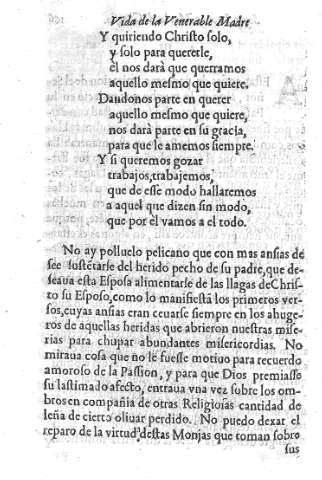 Vida de la Venerable Madre
Y quiriendo Christo solo,
y solo para quererle,
èl nos darà que querramos
aquello mesmo que quiere.
Dandonos parte en querer
aquello mesmo que quiere,
nos darà parte en su gracia,
para que le amemos siempre.
Y si queremos gozar
trabajos, trabajemos,
que de esse modo hallaremos
a aquel que dizen sin modo,
que por èl vamos a el todo.
No ay polluelo pelicano que con mas ansias de
see sustētarse del herido pecho de su padre, que de-
seaua esta Esposa alimentarse de las llagas de Chris-
to su Esposo, como lo manifiestā los primeros ver-
sos, cuyas ansias eran ceuarse siempre en los ahuge-
ros de aquellas heridas que abrieron nuestras mise-
rias para chupar abundantes misericordias. No
miraua cosa que no le fuesse motiuo para recuerdo
amoroso de la Passion, y para que Dios premiasse
su lastimado afecto, entraua vna vez sobre los om-
bros en compañia de otras Religiosas cantidad de
leña de cierto oliuar perdido. No puedo dexar el
reparo de la virtud destas Monjas que toman sobre
sus